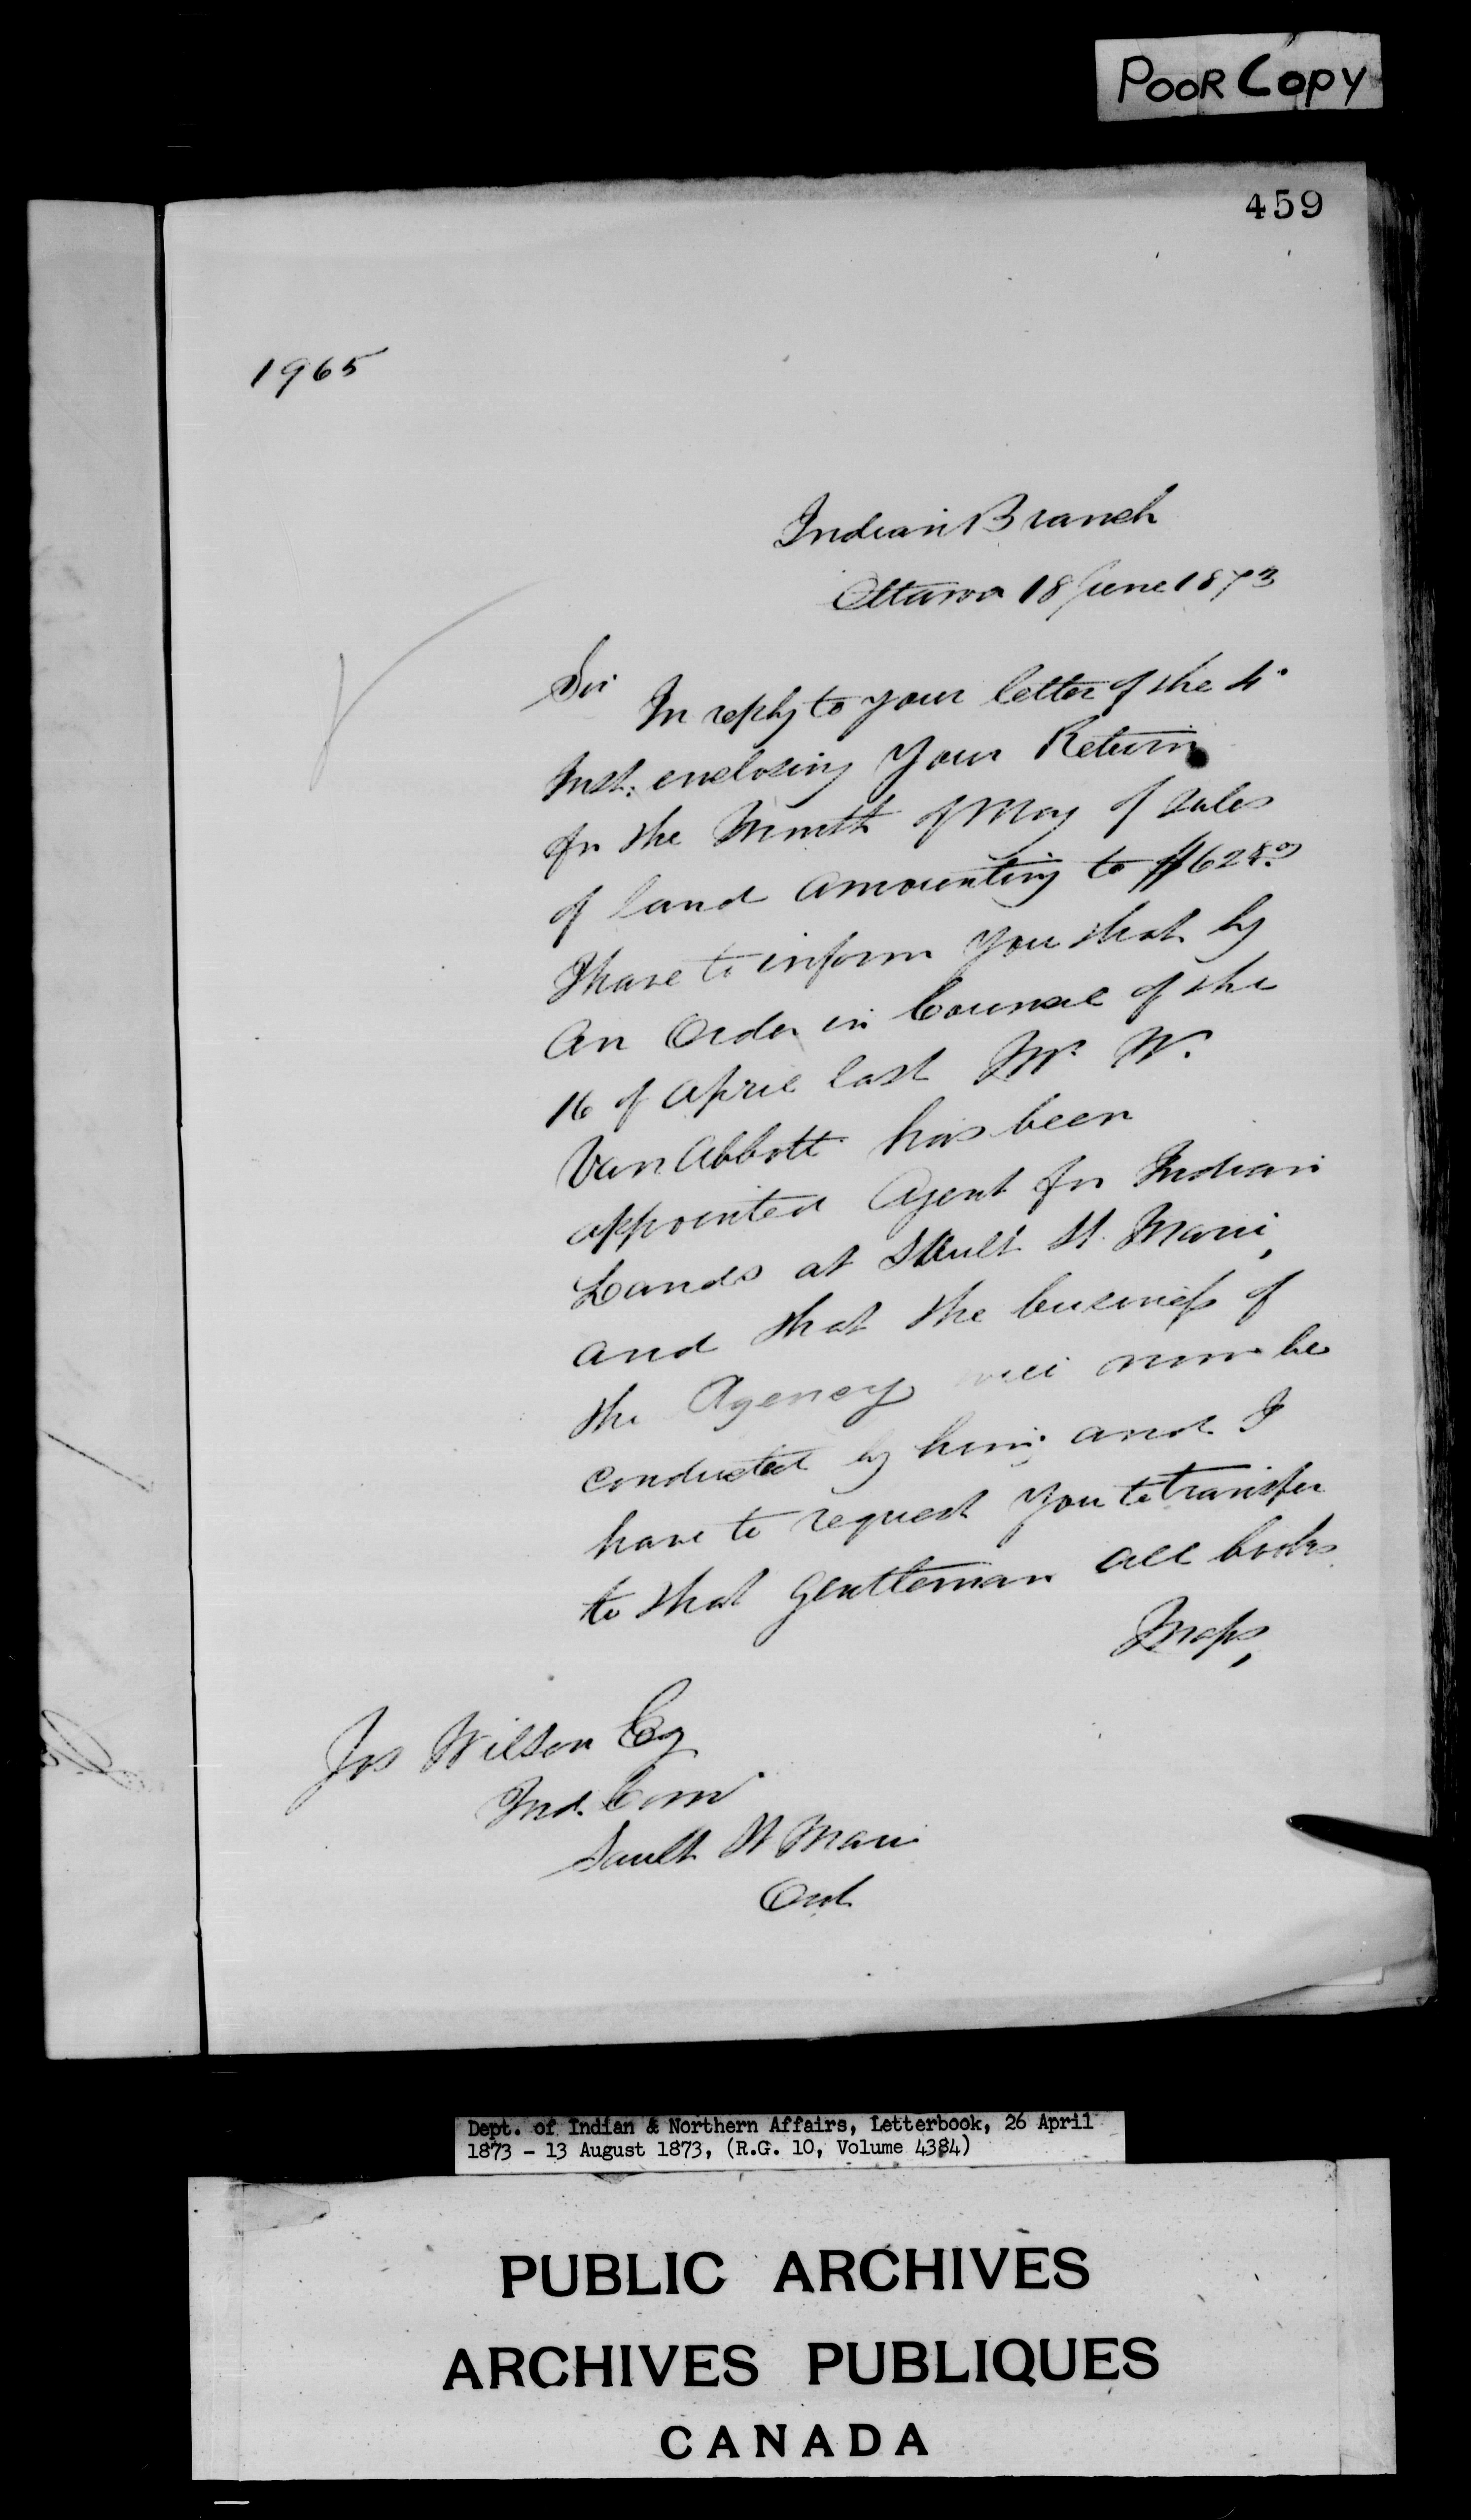 POOR COPY
459
1965
Indian Branch
Ottawa 18 June 1873
Sir
In reply to your letter of the 4th
Inst: enclosing your Return
for the Month of May of sales
of land amounting to $628.00
I have to inform you that by
an Order in Council of the
16 of April last Mr W.
Van Abbott has been
appointed Agent for Indian
Lands at Sault St Marie,
and that the business of
the Agency will now be
conducted by him; and I
have to request you to transfer
to that gentleman all books
Maps,
Jos Wilson Esq
Ind. Comr
Sault St Marie
Ont
Dept. of Indian & Northern Affairs, Letterbook, 26 April
1873 - 13 August 1873, (R.G. 10, Volume 4384)
PUBLIC ARCHIVES
ARCHIVES PUBLIQUES
CANADA